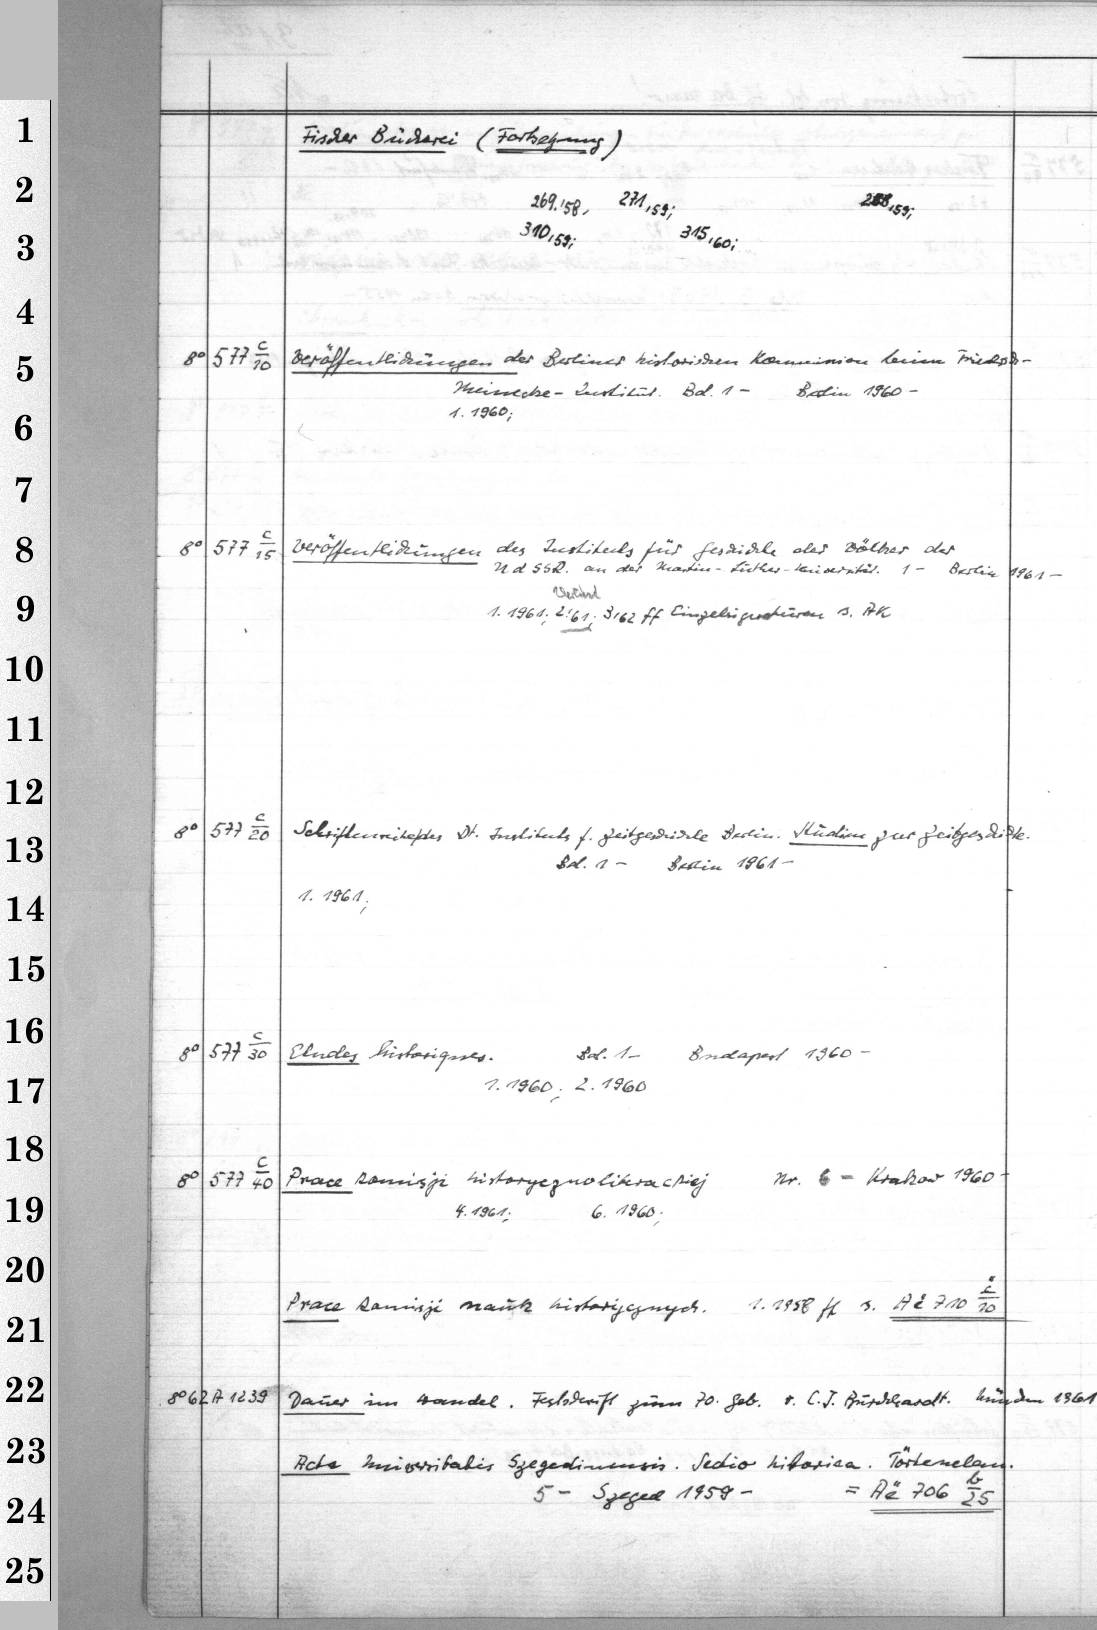 1
Fischer Bücherei (Fortsetzung)
2
269.'58, 271,59; 288,59;
3
310,59; 315,60;
4
8° 577 c/10 Veröffentlichungen der Berliner historischen Kommission beim Friedrich-
5
Meinecke-Institut. Bd. 1 – Berlin 1960 –
6
1. 1960;
7
8
8° 577 c/15 Veröffentlichungen des Instituts für Geschichte der Völker der
UdSSR. an der Martin-Luther-Universität. 1 – Berlin 1961 –
9
Verlust
1. 1961; 2'61; 3,62 ff Einzelsignaturen s. AK
10
11
12
8° 577 c/20 Schriftenreihe des Dt. Instituts f. Zeitgeschichte Berlin. Studien zur Zeitgeschichte.
13
Bd. 1 – Berlin 1961 –
14
1. 1961;
15
16
8° 577 c/30 Etudes historiques. Bd. 1 – Budapest 1960 –
17
1. 1960; 2. 1960
18
8° 577 c/40 Prace komisji historycznoliterackiej Nr. 6 – Krakow 1960 –
19
4. 1961; 6. 1960;
20
Prace komisji nauk historycznych. 1. 1958 ff s. Ač 710 c/10
21
22
8° 62 A 1239 Dauer im Wandel. Festschrift zum 70. Geb. v. C. J. Burckhardt. München 1961
23
Acta Universitatis Szegediensis. Sectio historica. Törtenelem.
24
5 – Szeged 1959 – = Ač 706 b/25
25